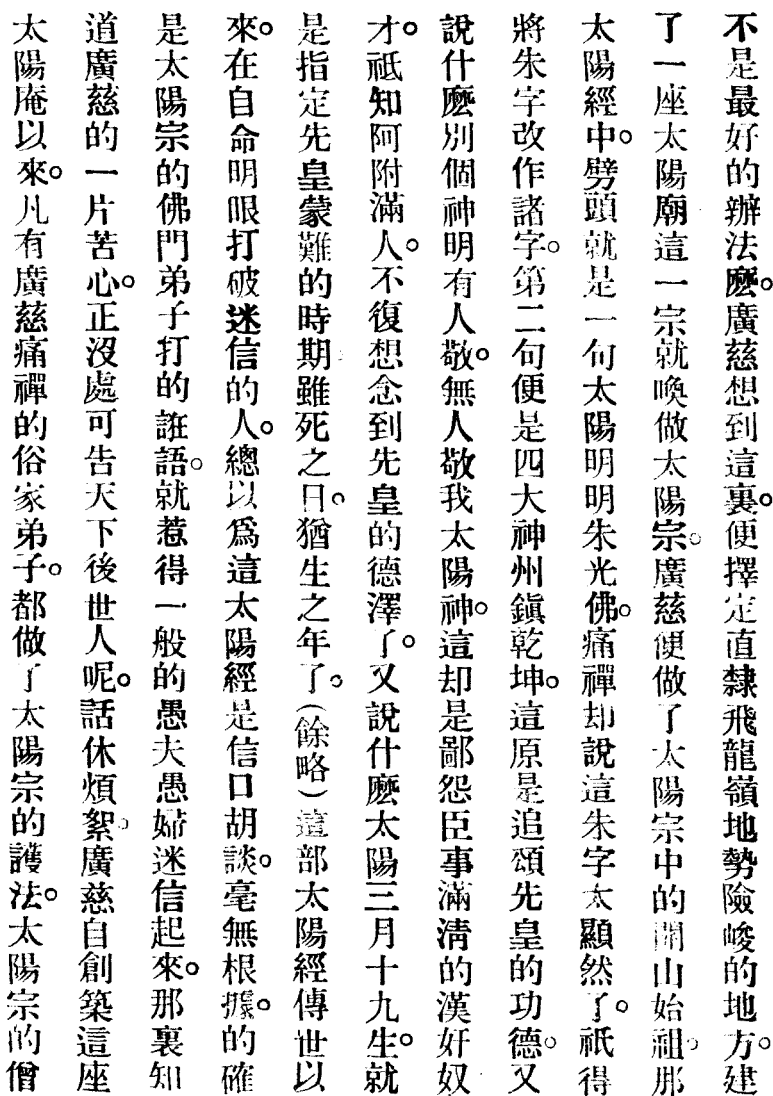 不是最好的辦法麽。廣慈想到這裏。便擇定直隸飛龍嶺地勢險峻的地方。建
了一座太陽廟這一宗就喚做太陽宗。廣慈便做了太陽宗中的開山始祖。那
太陽經中。劈頭就是一句太陽明明朱光佛。痛禪却說這朱字太顯然了。祇得
將朱字改作諸字。第二句便是四大神州鎮乾坤。這原是追頌先皇的功德。又
說什麽別個神明有人敬。無人敬我太陽神。這却是鄙怨臣事滿淸的漢奸奴
才。祗知阿附滿人。不復想念到先皇的德澤了。又說什麽太陽三月十九生。就
是指定先皇蒙難的時期雖死之日。猶生之年了。（餘略）這部太陽經傳世以
來。在自命明眼打破迷信的人。總以爲這太陽經是信口胡談。毫無根據。的確
是太陽宗的佛門弟子打的誑語。就惹得一般的愚夫愚婦迷信起來。那裏知
道廣慈的一片苦心。正沒處可告天下後世人呢。話休煩絮。廣慈自創築這座
太陽庵以來。凡有廣慈痛禪的俗家弟子。都做了太陽宗的護法。太陽宗的僧